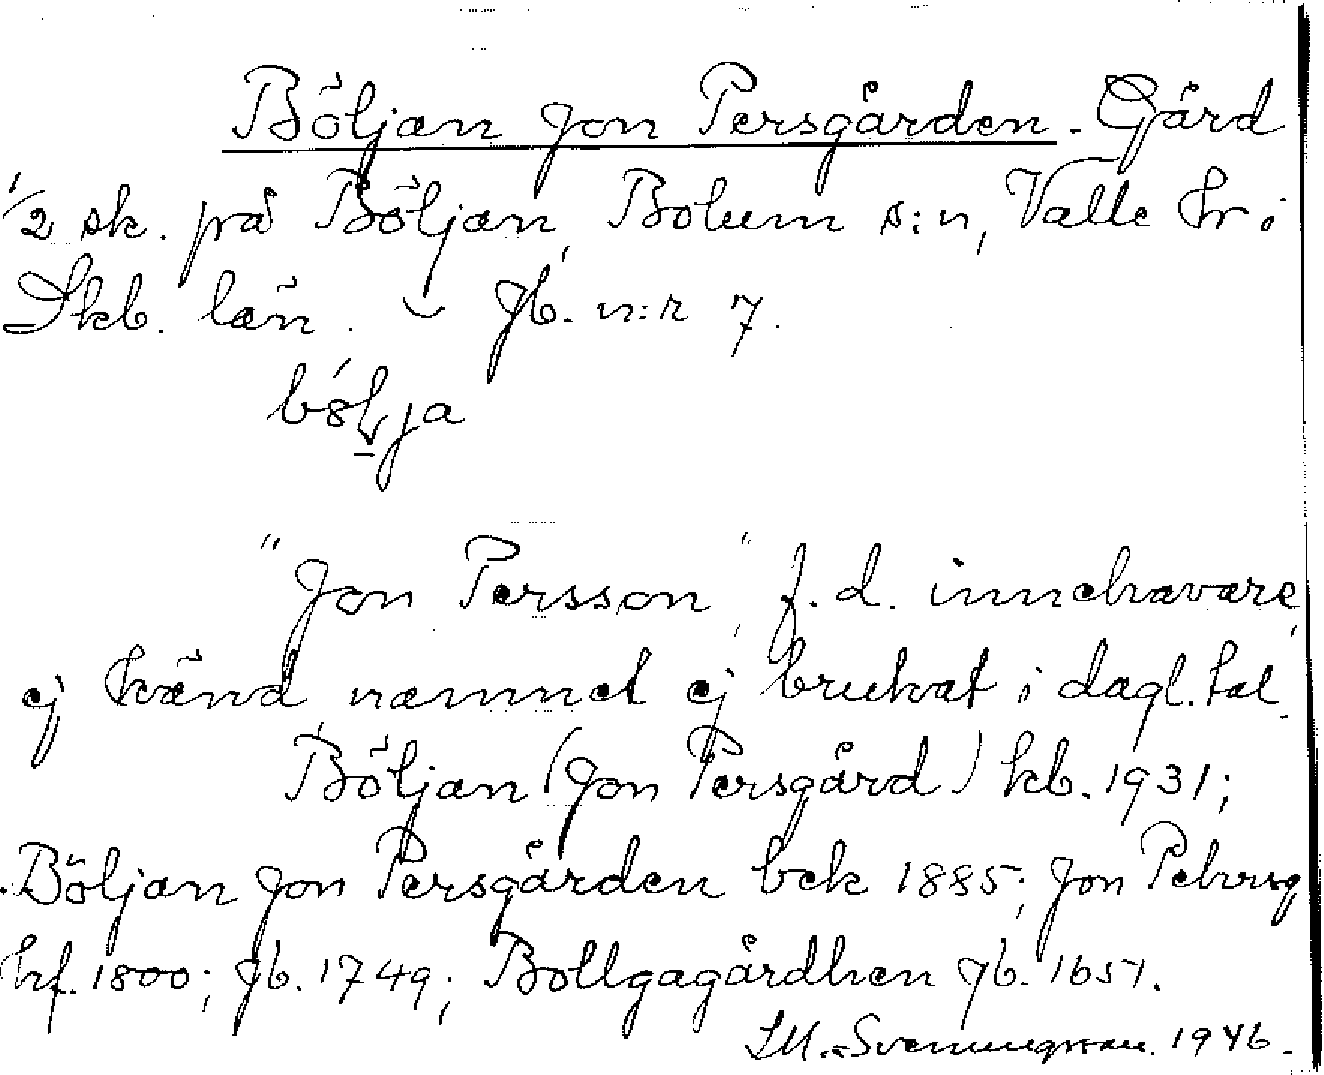 Böljan Jon Persgården - Gård
1/2 sk. på Böljan, Bolum s:n, Valle hr i
Skb. län. Jb. n:r 7.
"Jon Persson", f.d. innehavare,
ej känd namnet ej brukat i dagl. tal.
Böljan (Jon Persgård) kb. 1931;
Böljan Jon Persgården bek 1885; Jon
hf. 1800; Jb. 1749; Bollgagårdhen Jb. 1651.
Sveningsson. 1946.